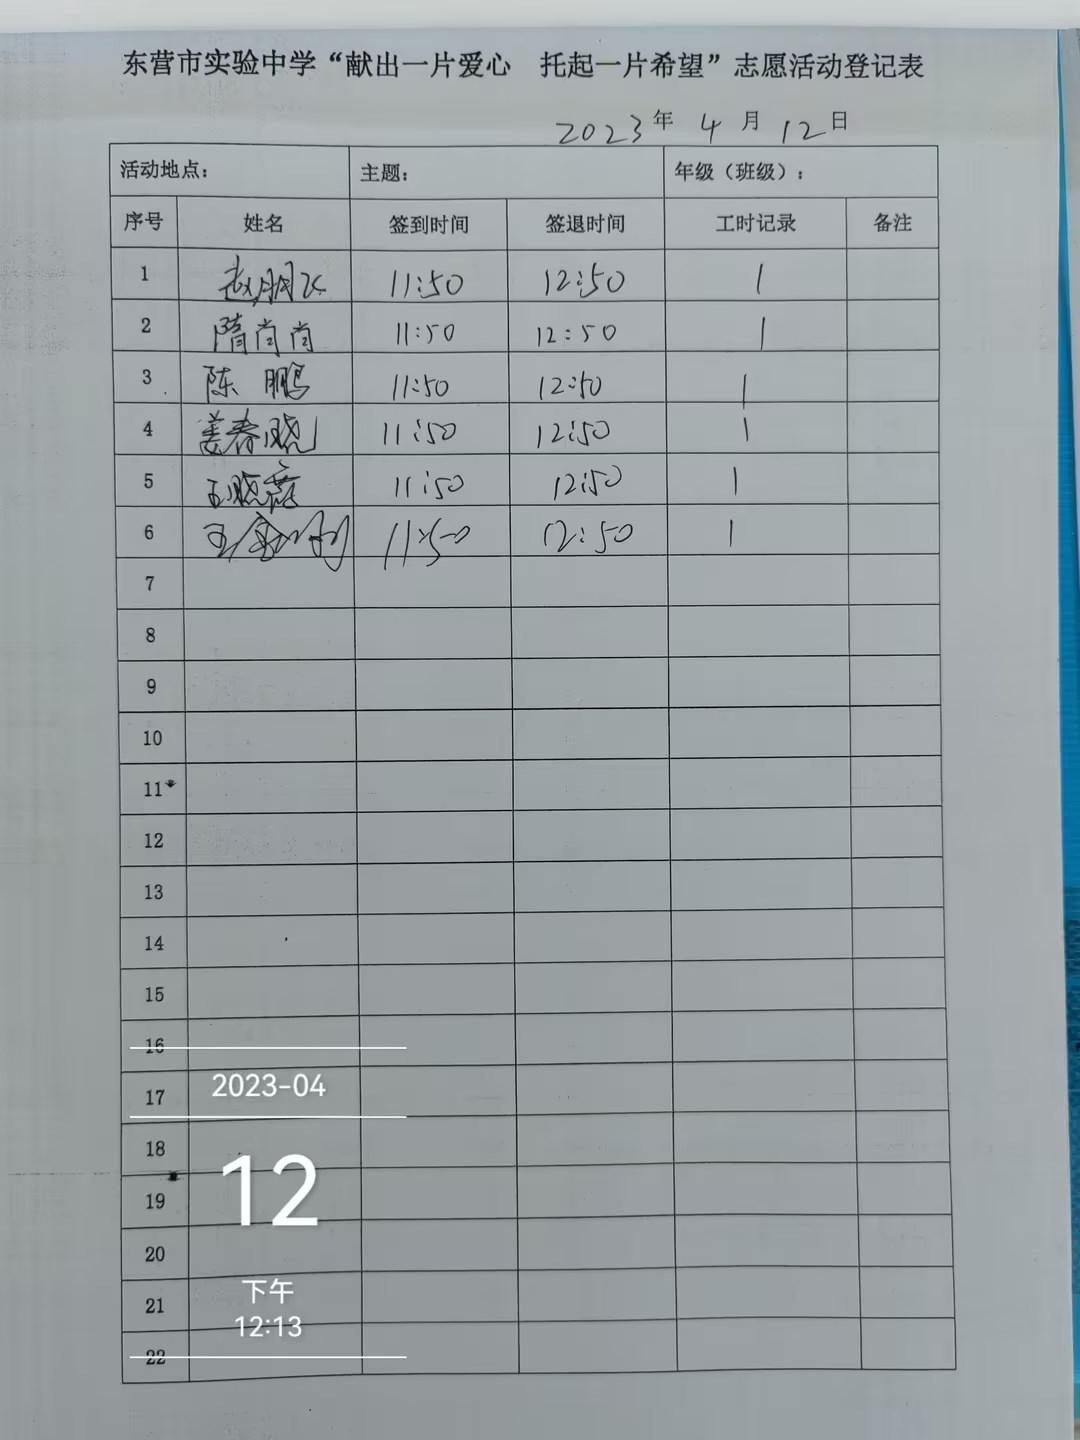 东营市实验中学“献出一片爱心 托起一片希望”志愿活动登记表
2023年 4月 12日
活动地点： 主题： 年级（班级）：
序号 姓名 签到时间 签退时间 工时记录 备注
1 赵朋飞 11:50 12:50 1
2 隋尚尚 11:50 12:50 1
3 陈鹏 11:50 12:50 1
4 姜春晓 11:50 12:50 1
5 王晓露 11:50 12:50 1
6 王 11:50 12:50 1
7
8
9
10
11
12
13
14
15
16
17
18
19
20
21
22
2023-04
12
下午
12:13